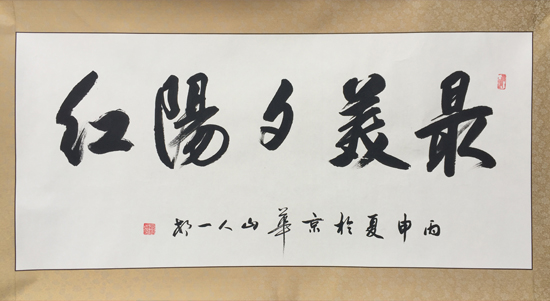 最美夕陽红
丙申夏於京華山人一都